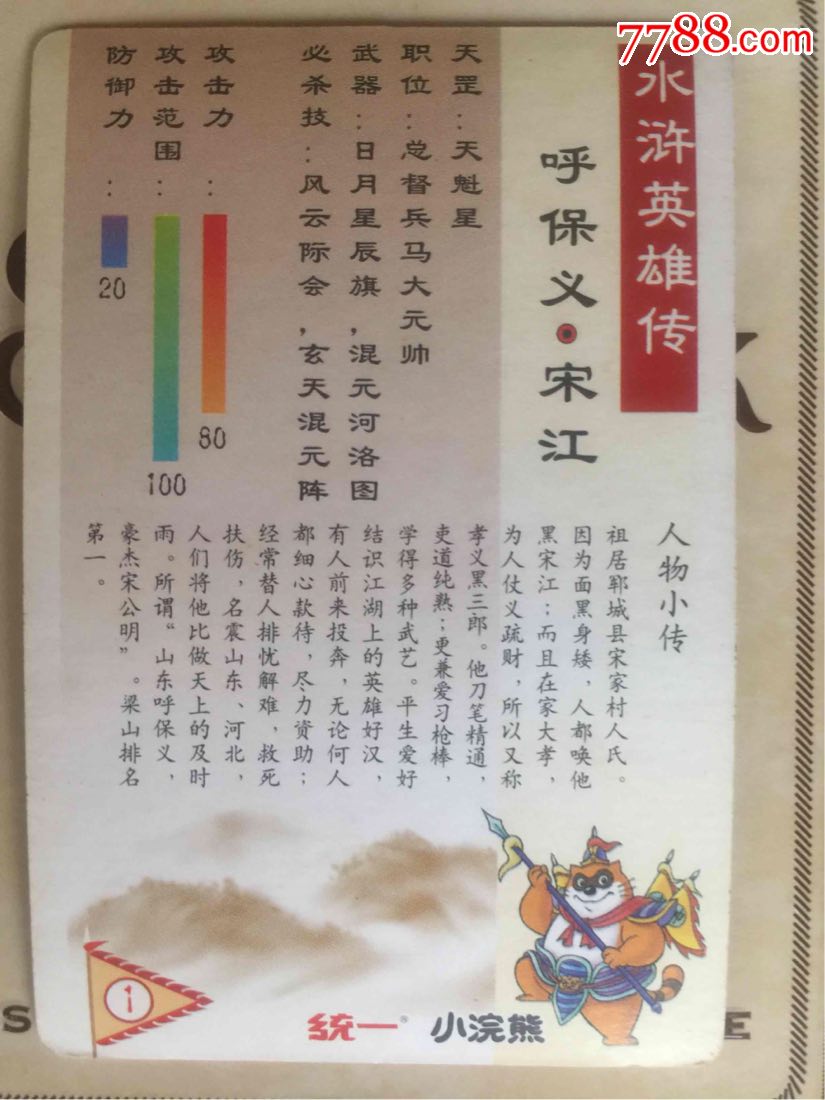 7788.com
水浒英雄传
呼保义·宋江
天罡：天魁星
职位：总督兵马大元帅
武器：日月星辰旗，混元河洛图
必杀技：风云际会，玄天混元阵
攻击力：
80
攻击范围：
100
防御力：
20
人物小传
祖居郓城县宋家村人氏。
因为面黑身矮，人都唤他
黑宋江；而且在家大孝，
为人仗义疏财，所以又称
孝义黑三郎。他刀笔精通，
吏道纯熟；更兼爱习枪棒，
学得多种武艺。平生爱好
结识江湖上的英雄好汉，
有人前来投奔，无论何人
都细心款待，尽力资助；
经常替人排忧解难，救死
扶伤，名震山东、河北，
人们将他比做天上的及时
雨。所谓“山东呼保义，
豪杰宋公明”。梁山排名
第一。
1
统一® 小浣熊
S
E